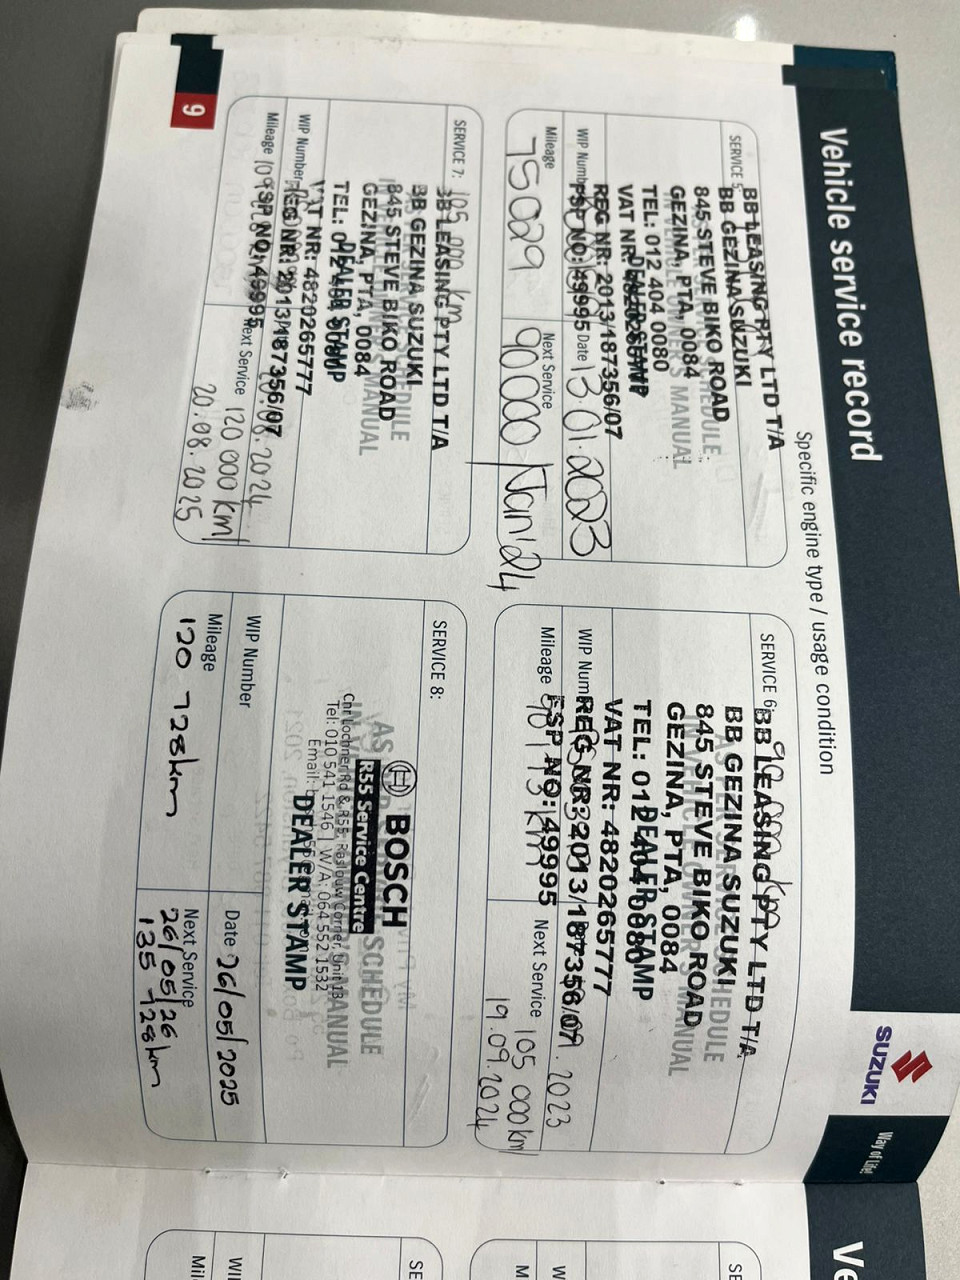 Vehicle service record
SUZUKI
Way of Life!
Specific engine type / usage condition
SERVICE 5:
BB LEASING PTY LTD T/A
BB GEZINA SUZUKI
845 STEVE BIKO ROAD
GEZINA, PTA, 0084
TEL: 012 404 0080
VAT NR:
DEALER STAMP
REG NR: 2013/187356/07
FSP NO: 49995
WIP Number
Date 13.01.2023
Mileage
75029
Next Service
90000 Jan'24
SERVICE 6:
BB LEASING PTY LTD T/A
BB GEZINA SUZUKI
845 STEVE BIKO ROAD
GEZINA, PTA, 0084
TEL: 012 404 0080
DEALER STAMP
VAT NR: 4820265777
REG NR: 2013/187356/07
FSP NO: 49995
WIP Number
2023
Mileage
Next Service 105 000 km/
19.09.2024
SERVICE 7: 105 000 km
BB LEASING PTY LTD T/A
BB GEZINA SUZUKI
845 STEVE BIKO ROAD
GEZINA, PTA, 0084
TEL: 012
DEALER STAMP
VAT NR: 4820265777
REG NR: 2013/187356/07
FSP NO: 49995
WIP Number
.08.2024
Mileage
Next Service 120 000 km/
20.08.2025
SERVICE 8:
AS SCHEDULE
IN MANUAL
BOSCH
R55 Service Centre
Cnr Lochner Rd & R55, Raslouw Corner, Unit 13
Tel: 010 541 1546 | W/A: 064 552 1532
Email:
DEALER STAMP
WIP Number
Date 26/05/2025
Mileage
120 728km
Next Service
26/05/26
135 728km
9
Ve